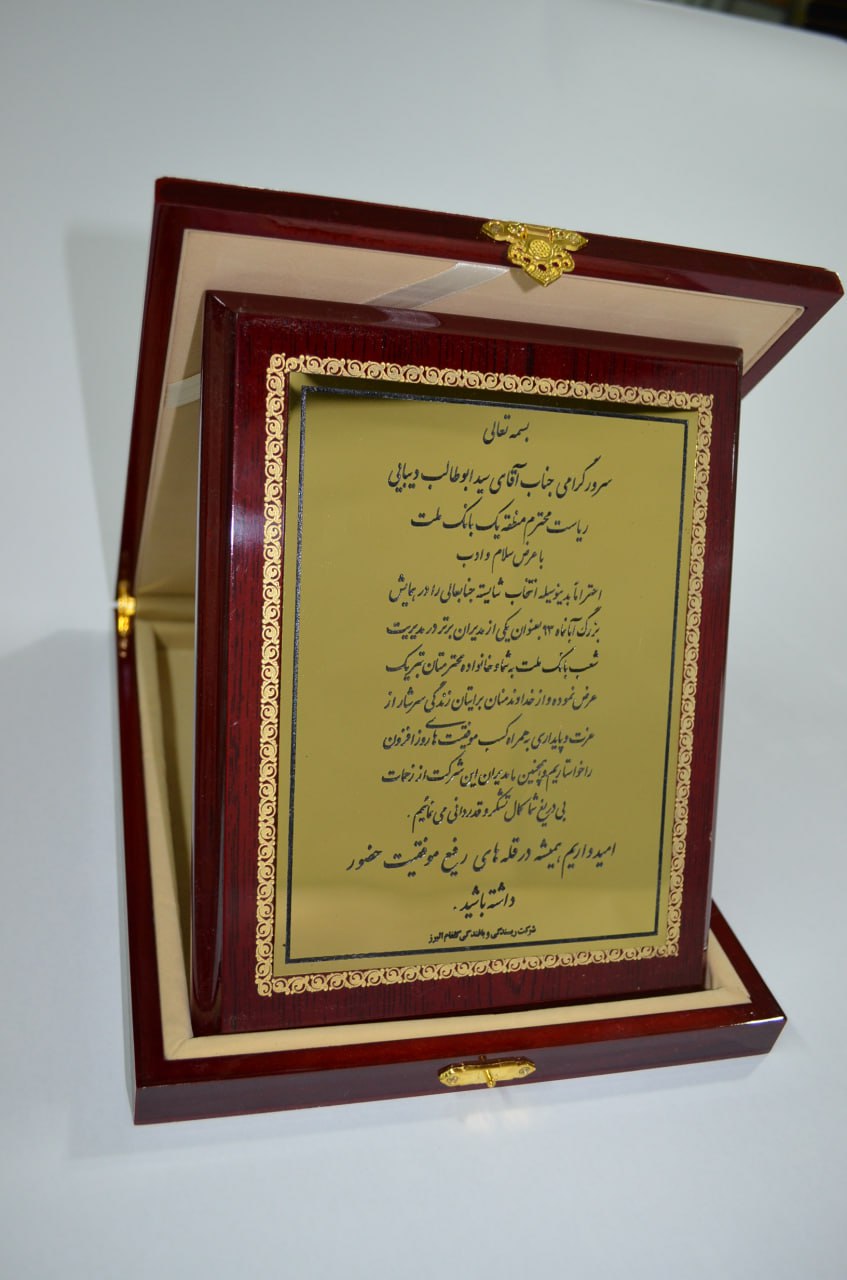 بسمه تعالی
سرور گرامی جناب آقای سید ابوطالب دیبایی
ریاست محترم منطقه یک بانک ملت
با عرض سلام و ادب
احتراماً بدینوسیله انتخاب شایسته جنابعالی را در همایش
بزرگ آبانماه ۹۳ بعنوان یکی از مدیران برتر در مدیریت
شعب بانک ملت به شما و خانواده محترمتان تبریک
عرض نموده و از خداوند منان برایتان زندگی سرشار از
عزت و پایداری به همراه کسب موفقیت های روز افزون
را خواستاریم و همچنین ما مدیران این شرکت از زحمات
بی دریغ شما کمال تشکر و قدردانی می نمائیم .
امید داریم همیشه در قله های رفیع موفقیت حضور
داشته باشید .
شرکت ریسندگی و بافندگی گلفام البرز